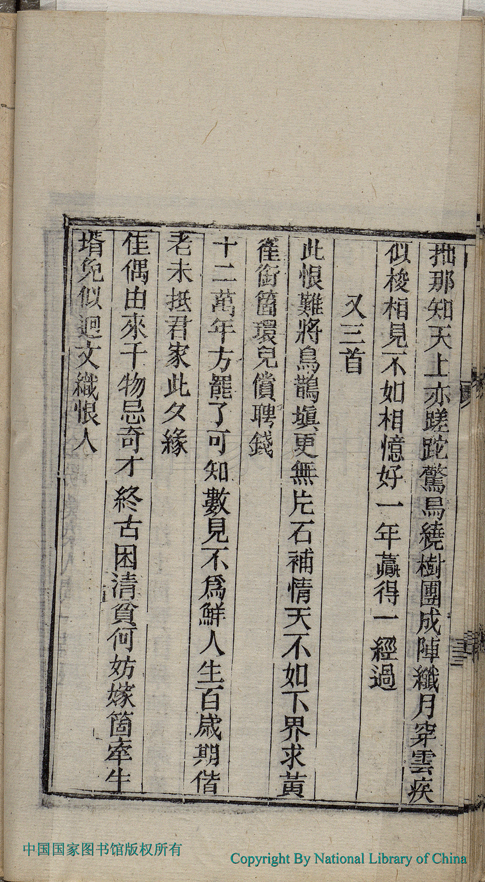 拙那知天上亦蹉跎驚烏繞樹團成陣纖月穿雲疾
似梭相見不如相憶好一年贏得一經過
又三首
此恨難將烏鵲塡更無片石補情天不如下界求黃
雀銜箇環兒償聘錢
十二萬年方罷了可知數見不爲鮮人生百歲期偕
老未抵君家此夂緣
佳偶由來干物忌奇才終古困清貧何妨嫁箇牽牛
壻免似迴文織恨人
中国国家图书馆版权所有
Copyright By National Library of China